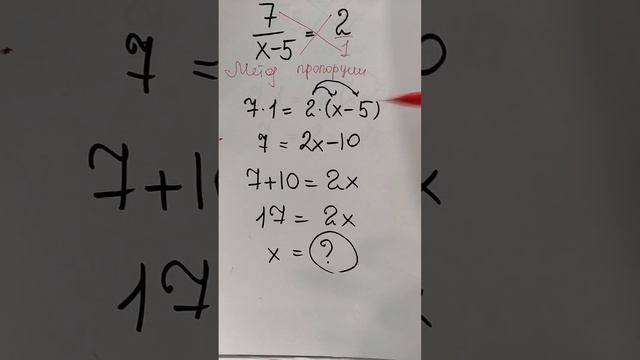 7/(x-5) = 2/1
Метод пропорции
7·1 = 2·(x-5)
7 = 2x-10
7+10 = 2x
17 = 2x
x = ?